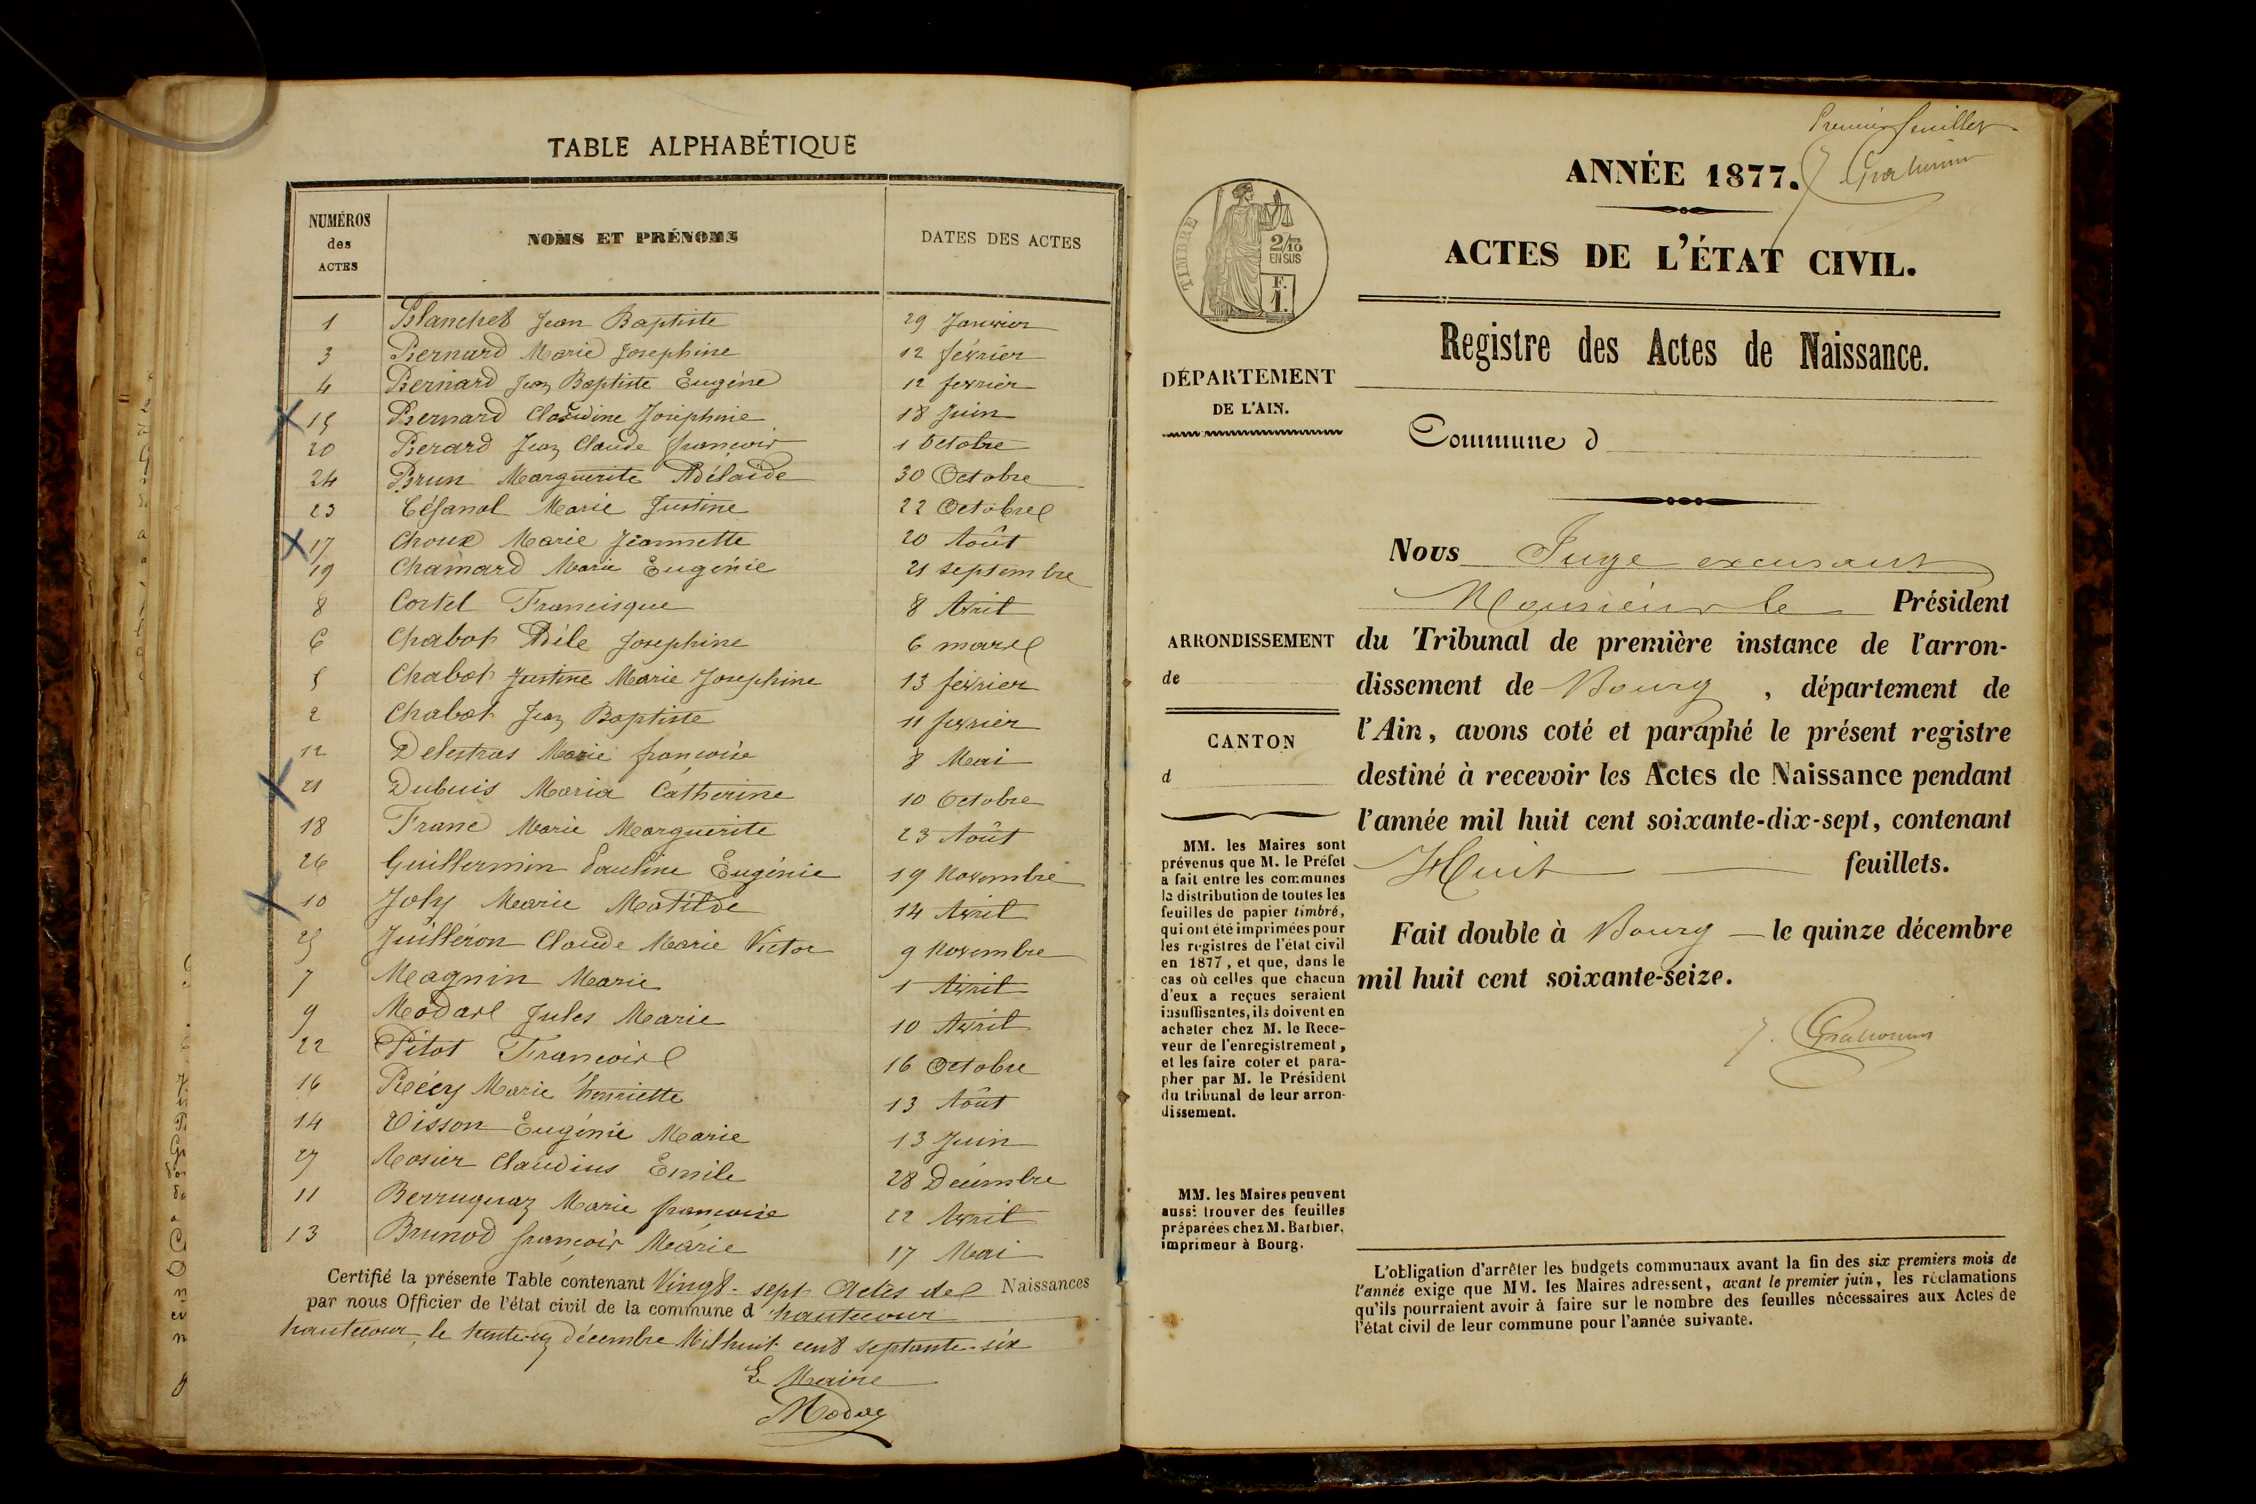 TABLE ALPHABÉTIQUE
NUMÉROS des ACTES
NOMS ET PRÉNOMS
DATES DES ACTES
1 Blanchet Jean Baptiste 29 Janvier
3 Bernard Marie Josephine 12 février
4 Bernard Jean Baptiste Eugéne 12 fevrier
15 Bernard Claudine Joséphine 18 Juin
20 Berard Jean Claude françois 1 Octobre
24 Brun Marguerite Adélaide 30 Octobre
23 Marie Justine 22 Octobre
17 Choux Marie Jeannette 20 Août
19 Chamard Marie Eugénie 21 septembre
8 Cortel Francisque 8 Avril
6 Chabot Adéle Josephine 6 mars
5 Chabot Justine Marie Josephine 13 février
2 Chabot Jean Baptiste 11 fevrier
12 Delestras Marie françoise 8 Mai
21 Dubuis Maria Catherine 10 Octobre
18 Franc Marie Marguerite 23 Août
26 Guillermin Pauline Eugénie 19 Novembre
10 Joly Marie Matilde 14 Avril
25 Juilleron Claude Marie Victor 9 Novembre
7 Magnin Marie 1 Avril
9 Modas Jules Marie 10 Avril
22 Pitot François 16 Octobre
16 Récy Marie henriette 13 Août
14 Visson Eugénie Marie 13 Juin
27 Claudius Emile 28 Décembre
11 Berruguaz Marie françoise 22 Avril
13 Brunod françois Marie 17 Mai
Certifié la présente Table contenant Vingt-sept Actes de Naissances
par nous Officier de l'état civil de la commune d hautecour
hautecour, le trente un décembre Mil huit cent septante-six
Le Maire
Modas
Premier feuillet
ANNÉE 1877.
TIMBRE
2/10
EN SUS
F.
1.
ACTES DE L'ÉTAT CIVIL.
Registre des Actes de Naissance.
DÉPARTEMENT
DE L'AIN.
Commune d
ARRONDISSEMENT
de
CANTON
d
MM. les Maires sont
prévenus que M. le Préfet
a fait entre les communes
la distribution de toutes les
feuilles de papier timbré,
qui ont été imprimées pour
les registres de l'état civil
en 1877, et que, dans le
cas où celles que chacun
d'eux a reçues seraient
insuffisantes, ils doivent en
acheter chez M. le Rece-
veur de l'enregistrement,
et les faire coter et para-
pher par M. le Président
du tribunal de leur arron-
dissement.
MM. les Maires peuvent
aussi trouver des feuilles
préparées chez M. Barbier,
imprimeur à Bourg.
Nous Juge excusant
Monsieur le Président
du Tribunal de première instance de l'arron-
dissement de Bourg, département de
l'Ain, avons coté et paraphé le présent registre
destiné à recevoir les Actes de Naissance pendant
l'année mil huit cent soixante-dix-sept, contenant
Huit feuillets.
Fait double à Bourg le quinze décembre
mil huit cent soixante-seize.
L'obligation d'arrêter les budgets communaux avant la fin des six premiers mois de
l'année exige que MM. les Maires adressent, avant le premier juin, les réclamations
qu'ils pourraient avoir à faire sur le nombre des feuilles nécessaires aux Actes de
l'état civil de leur commune pour l'année suivante.